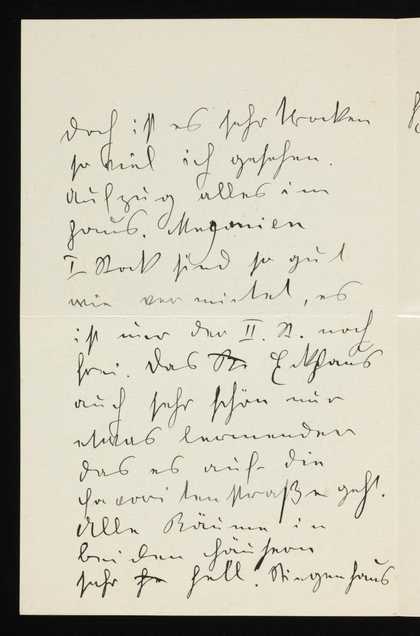 doch ist es sehr trocken
so viel ich gesehen.
Aufzug alles im
Haus. Mezzanien
I Stock sind so gut
wie vermietet, es
ist nur der II. St. noch
frei. Das Eckhaus
auch sehr schön nur
etwas lermender
das es auf die
Favoritenstraße geht.
Alle Räume in
beiden Häusern
sehr hell. Stiegenhaus